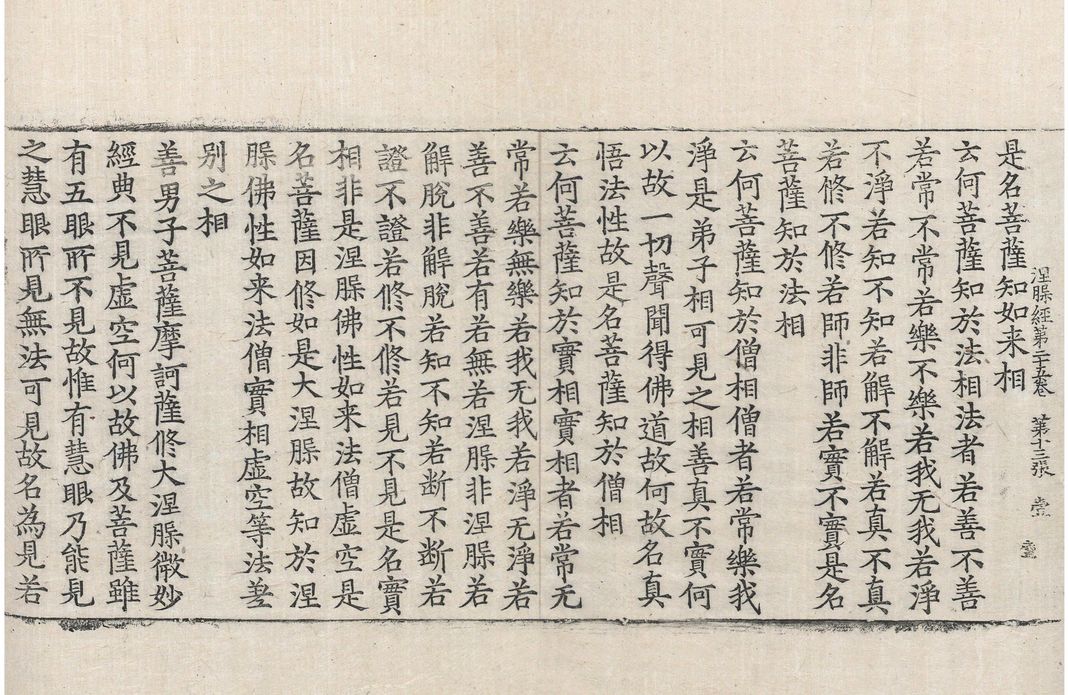 涅槃經第二十五卷 第十三張 壹
是名菩薩知如来相
云何菩薩知於法相法者若善不善
若常不常若樂不樂若我无我若淨
不淨若知不知若解不解若真不真
若修不修若師非師若實不實是名
菩薩知於法相
云何菩薩知於僧相僧者若常樂我
淨是弟子相可見之相善真不實何
以故一切聲聞得佛道故何故名真
悟法性故是名菩薩知於僧相
云何菩薩知於實相實相者若常无
常若樂無樂若我无我若淨无淨若
善不善若有若無若涅槃非涅槃若
解脫非解脫若知不知若断不断若
證不證若修不修若見不見是名實
相非是涅槃佛性如来法僧虛空是
名菩薩因修如是大涅槃故知於涅
槃佛性如来法僧實相虛空等法差
別之相
善男子菩薩摩訶薩修大涅槃微妙
經典不見虛空何以故佛及菩薩雖
有五眼所不見故惟有慧眼乃能見
之慧眼所見無法可見故名為見若